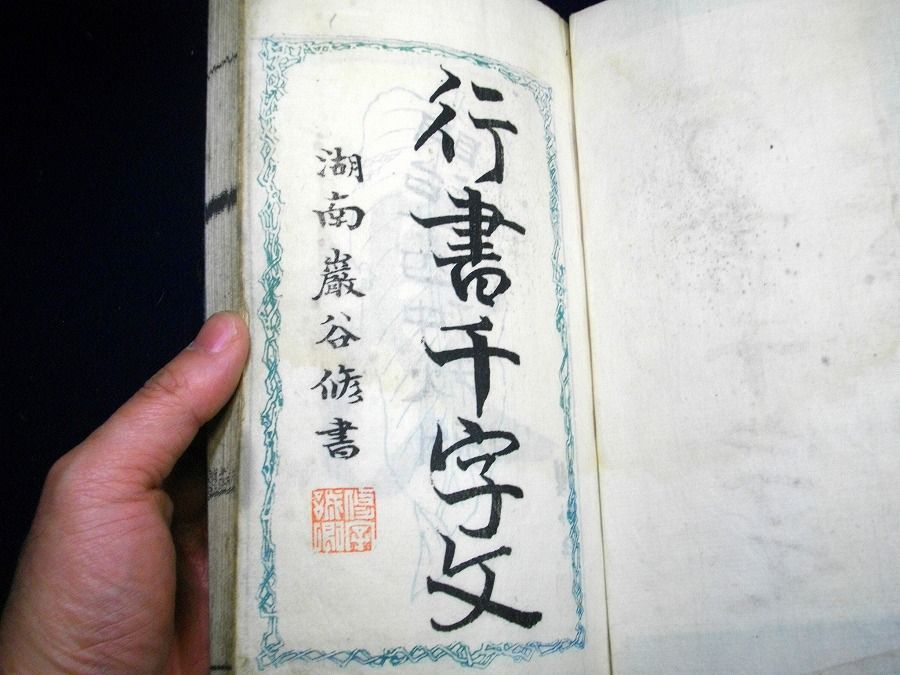 行書千字文
湖南巖谷修書